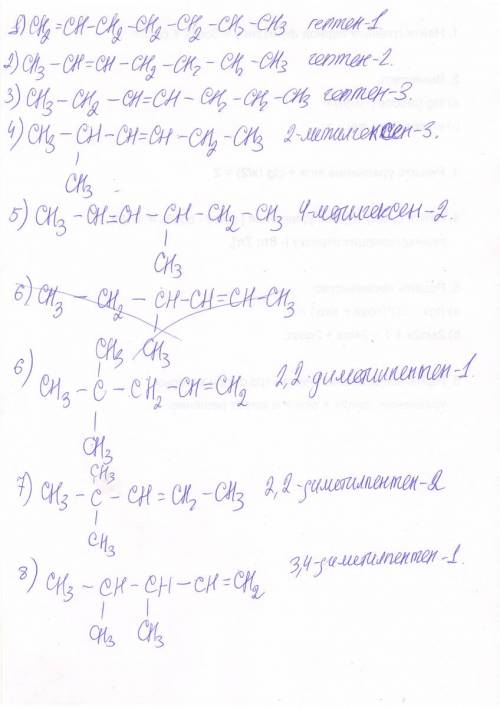 1) CH2=CH-CH2-CH2-CH2-CH2-CH3 гептен-1
2) CH3-CH=CH-CH2-CH2-CH2-CH3 гептен-2.
3) CH3-CH2-CH=CH-CH2-CH2-CH3 гептен-3.
4) CH3-CH-CH=CH-CH2-CH3 2-метилгексен-3.
CH3
5) CH3-CH=CH-CH-CH2-CH3 4-метилгексен-2.
CH3
6) CH3-CH2-CH-CH=CH-CH3
CH3
CH3
6) CH3-C-CH2-CH=CH2 2,2-диметилпентен-1.
CH3
CH3
7) CH3-C-CH=CH2-CH3 2,2-диметилпентен-2
CH3
3,4-диметилпентен-1.
8) CH3-CH-CH-CH=CH2
CH3 CH3